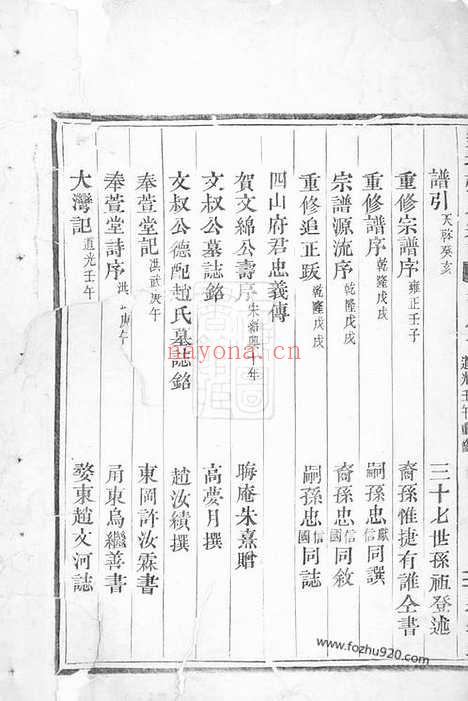 譜引 天啓癸亥 三十七世孫祖登述
重修宗譜序 雍正壬子 裔孫惟捷有誰仝書
重修譜序 乾隆戊戌 嗣孫忠獻信同譔
宗譜源流序 乾隆戊戌 裔孫忠信國同敘
重修追正跋 乾隆戊戌 嗣孫忠信國同誌
四山府君忠義傳
賀文綿公壽序 宋紹興十年 晦庵朱熹贈
文叔公墓誌銘 高夢月撰
文叔公德配趙氏墓誌銘 趙汝績撰
奉萱堂記 洪武庚午 東岡許汝霖書
奉萱堂詩序 洪武庚午 甬東烏繼善書
大灣記 道光壬午 婺東趙文河誌
道光壬午
nayona.cn
www.fozhu920.com